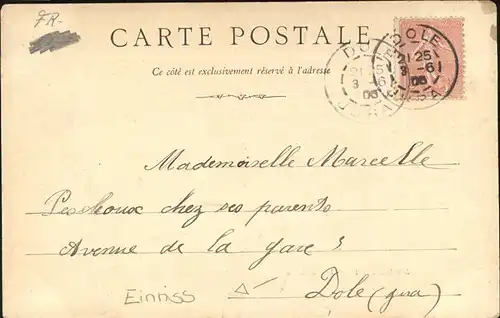 FR-
CARTE POSTALE
Ce côté est exclusivement réservé à l'adresse
DOLE
21 25
3 -6
06
JURA
DOLE
21 25
3 -6
06
JURA
Mademoiselle Marcelle
chez ses parents
Avenue de la gare
Dole (Jura)
Einriss